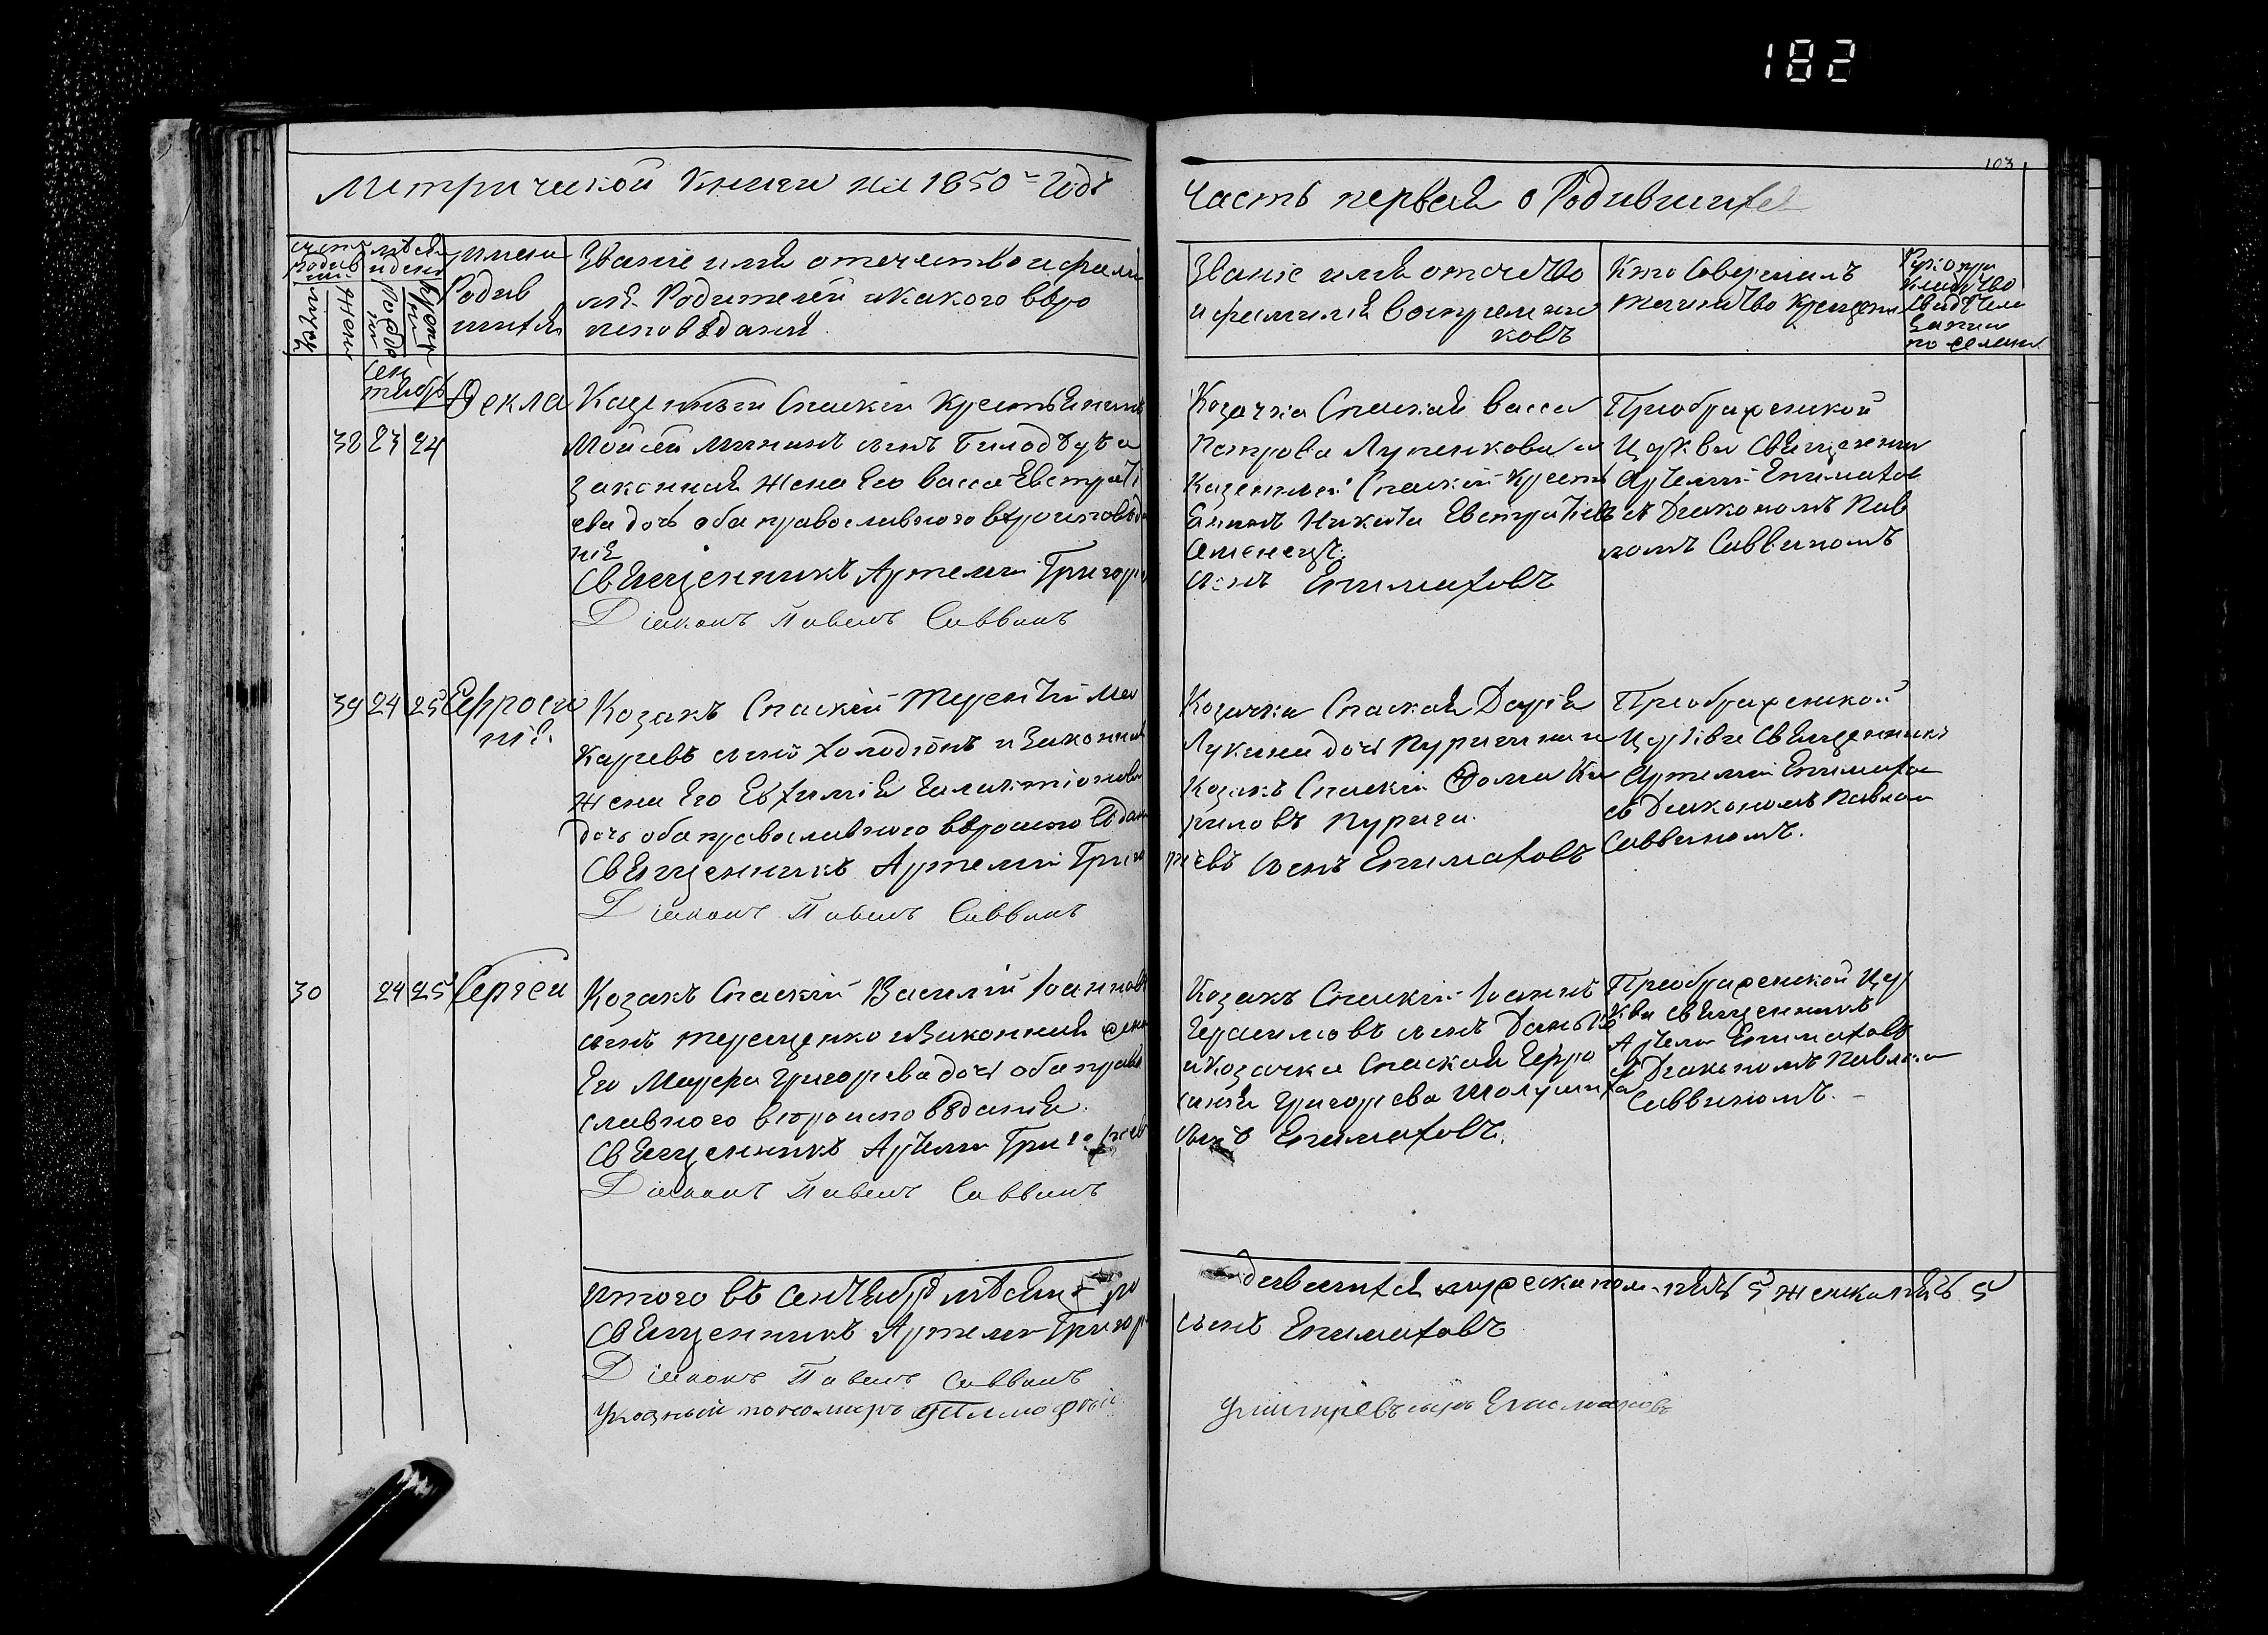 182
103
Метрической книги на 1850 годъ
Часть первая о Родившихся
счетъ родив
мѣсяц и день
имена Родив шихся
Званіе имя отечество и фами
лія Родителей и какого вѣро
исповѣданія
мужск
женск
Рожде нія
Крещ нія
Званіе имя отечество
и фамилія восприемни
ковъ
Кто совершалъ
таинство крещенія
Рукопри
кладство
свидѣтеле
записи
по желанію
сен
тябрь
38 23 24
Фекла
Казенный Спаскій крестьянинъ
Мойсей Мининъ сынъ Билодѣдъ и
законная жена Его васса Евстраті
ева дочь оба православного вѣроисповѣда
нія
Священникъ Артемій Григорі
Діаконъ Павелъ Саввинъ
Козачка Спаская васса
Петрова Лутенкова и
Казенный Спаскій крест
янинъ Никита Евстратіевъ
Семенецъ.
сынъ Епимаховъ
Преображенской
Церкви Священни
Артемій Епимахов
съ Диакономъ Пав
ломъ Саввиномъ
39 24 25
Ефроси
нія.
Козакъ Спаскій Терентій Ма
каревъ сынъ Холодіонъ и Законная
жена Его Евхимія Галактіонова
дочь оба православного вѣроисповѣдан
Священникъ Артемій Григо
Діаконъ Павелъ Саввинъ
Козачка Спаская Дарія
Лукина дочь Пуригина и
Козакъ Спаскій Фома Ки
риловъ Пурига.
ріевъ сынъ Епимаховъ
Преображенской
Церкви Священникъ
Артемій Епимахо
съ Диакономъ Павлом
Саввиномъ.
30 24 25
Сергей
Козакъ Спаскій Василій Іоаннов
сынъ Терещенко и Законная жена
Его Марфа Григорева дочь оба право
славного вѣроисповѣданія.
Священникъ Артемій Григорьев
Діаконъ Павелъ Саввинъ
Козакъ Спаскій Іоаннъ
Герасимовъ сынъ
и Козачка Спаская Ефро
синія Григорева
сынъ Епимаховъ.
Преображенской Цер
кви священникъ
Артемій Епимаховъ
съ Диакономъ Павлом
Саввиномъ.
Итого въ Сентябрѣ мѣсяцѣ ро
дившихся мужеска пол. пять 5 женска пять 5
Священникъ Артемій Григор
сынъ Епимаховъ
Діаконъ Павелъ Саввинъ
Указный пономарь Тимофей
Дмитріевъ сынъ Епимаховъ